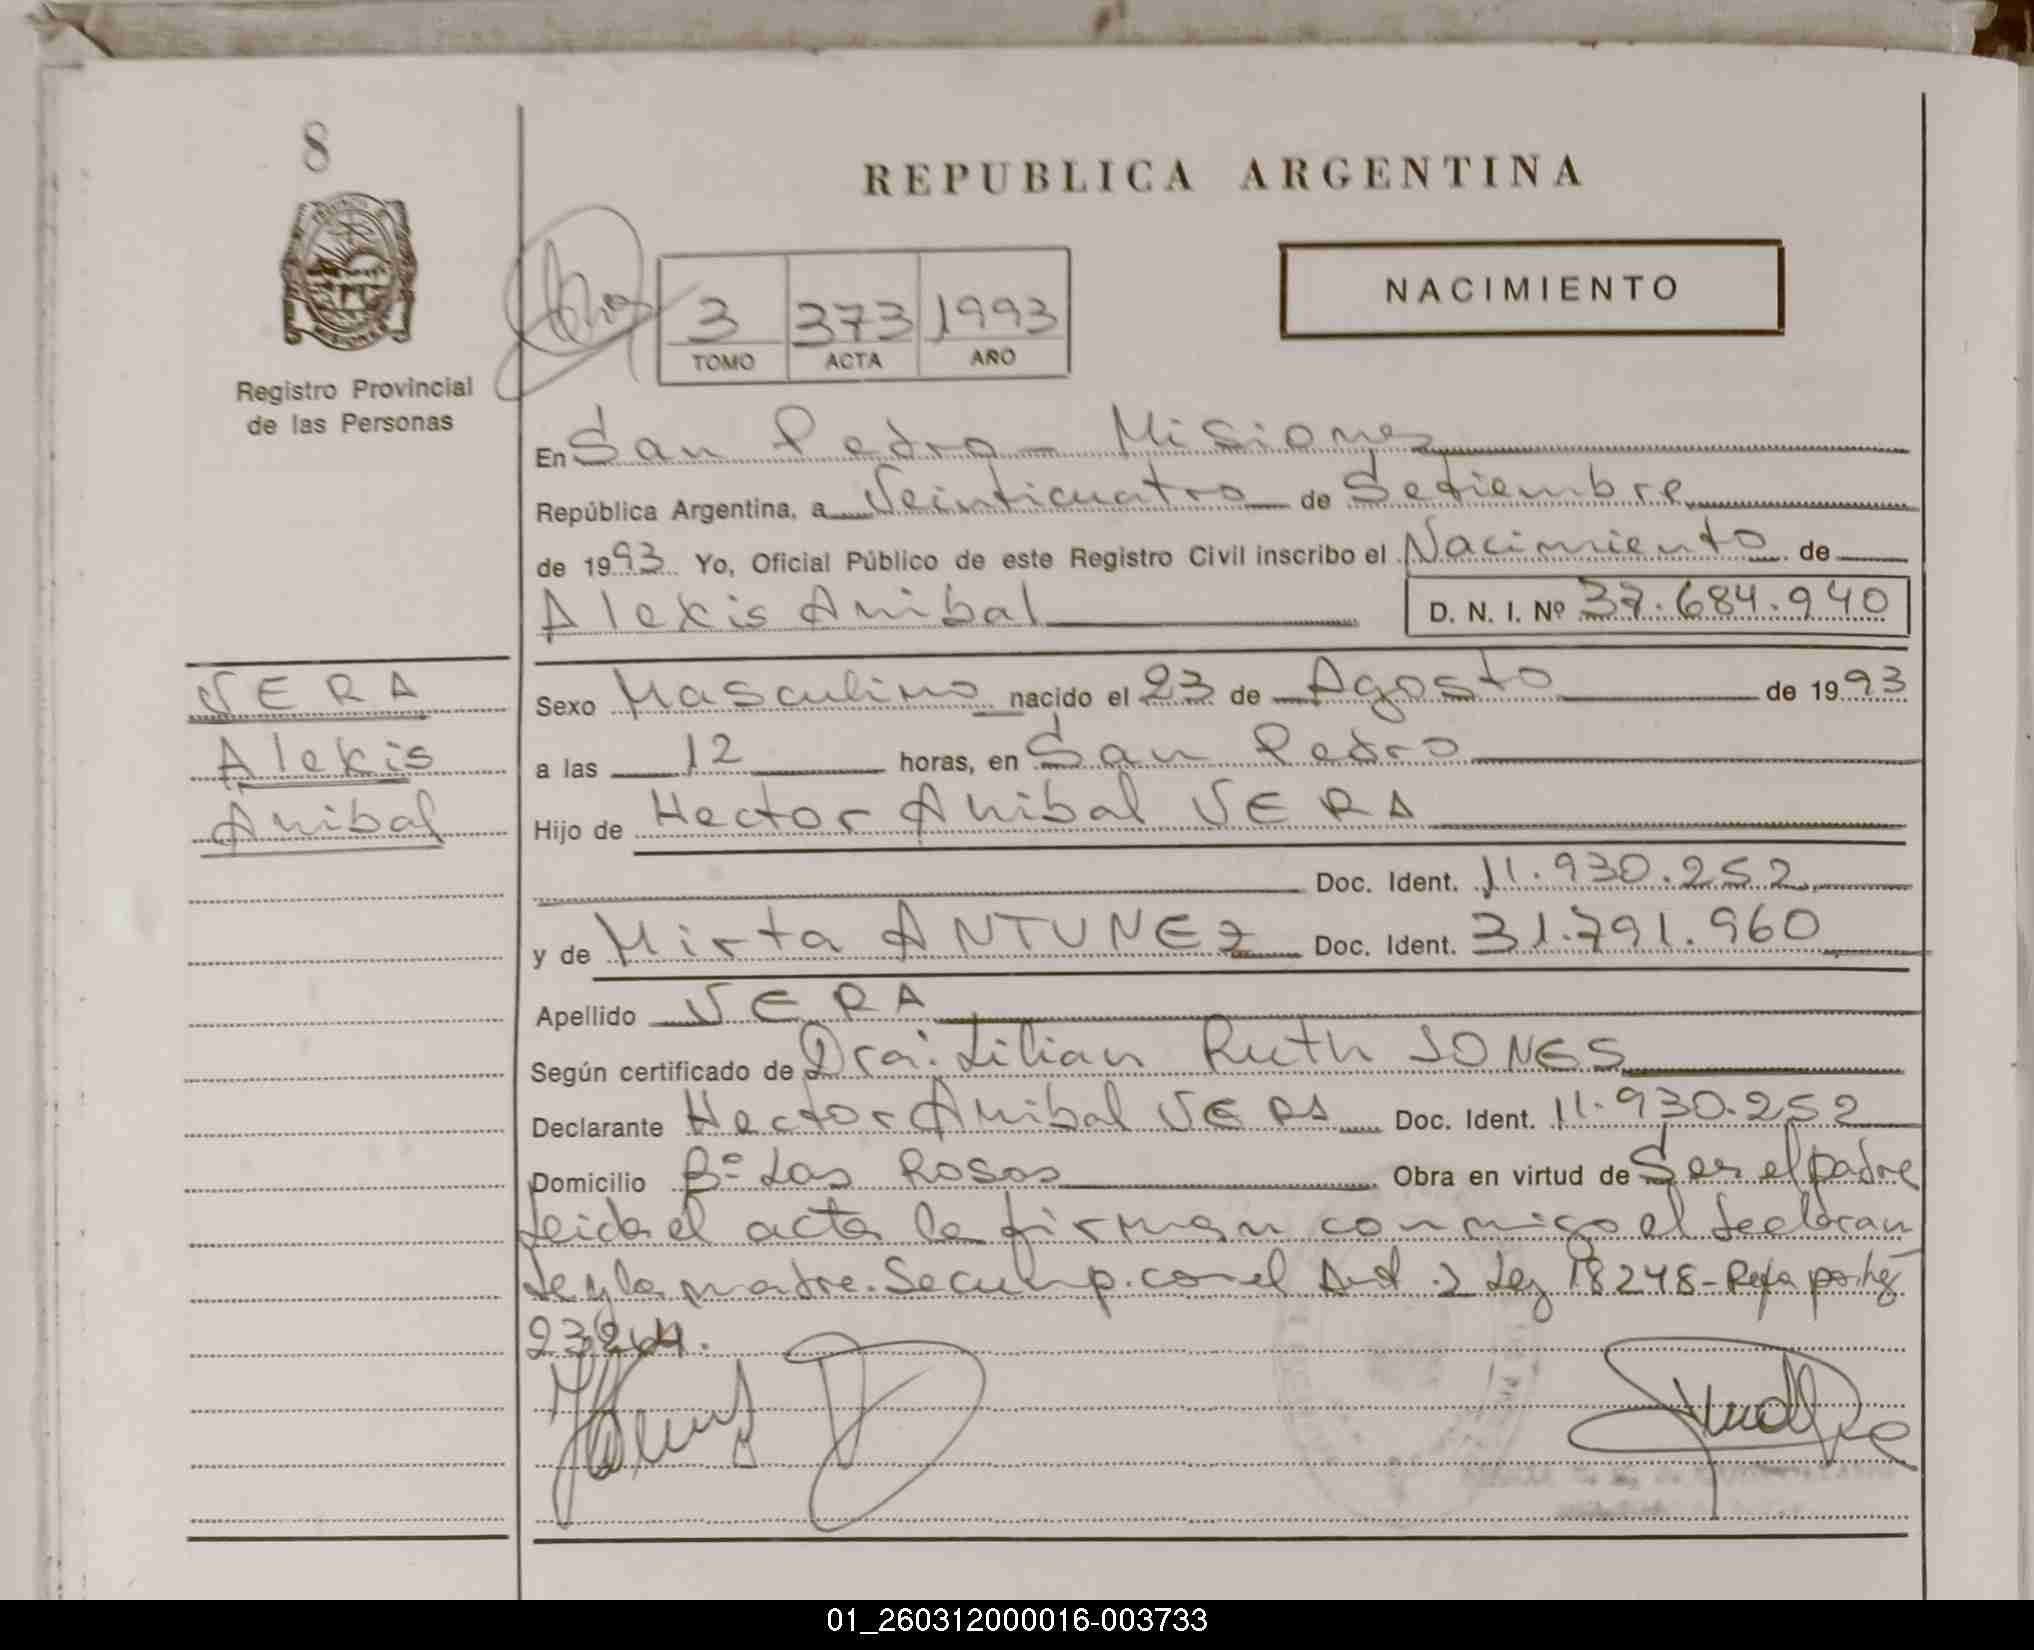 8
REPUBLICA ARGENTINA
NACIMIENTO
3 373 1993
TOMO ACTA AÑO
Registro Provincial
de las Personas
En San Pedro - Misiones
República Argentina, a Veinticuatro de Setiembre
de 1993 Yo, Oficial Público de este Registro Civil inscribo el Nacimiento de
Alexis Anibal D. N. I. Nº 37.684.940
VERA
Alexis
Anibal
Sexo Masculino nacido el 23 de Agosto de 1993
a las 12 horas, en San Pedro
Hijo de Hector Anibal VERA
Doc. Ident. 11.930.252
y de Mirta ANTUNEZ Doc. Ident. 31.791.960
Apellido VERA
Según certificado de Dra: Lilian Ruth JONES
Declarante Hector Anibal VERA Doc. Ident. 11.930.252
Domicilio Bº Las Rosas Obra en virtud de Ser el padre
Leida el acta la firman conmigo el declaran
te y la madre. Se cump. con el Art. 2 Ley 18248 - Refa por ley
23264.
01_260312000016-003733